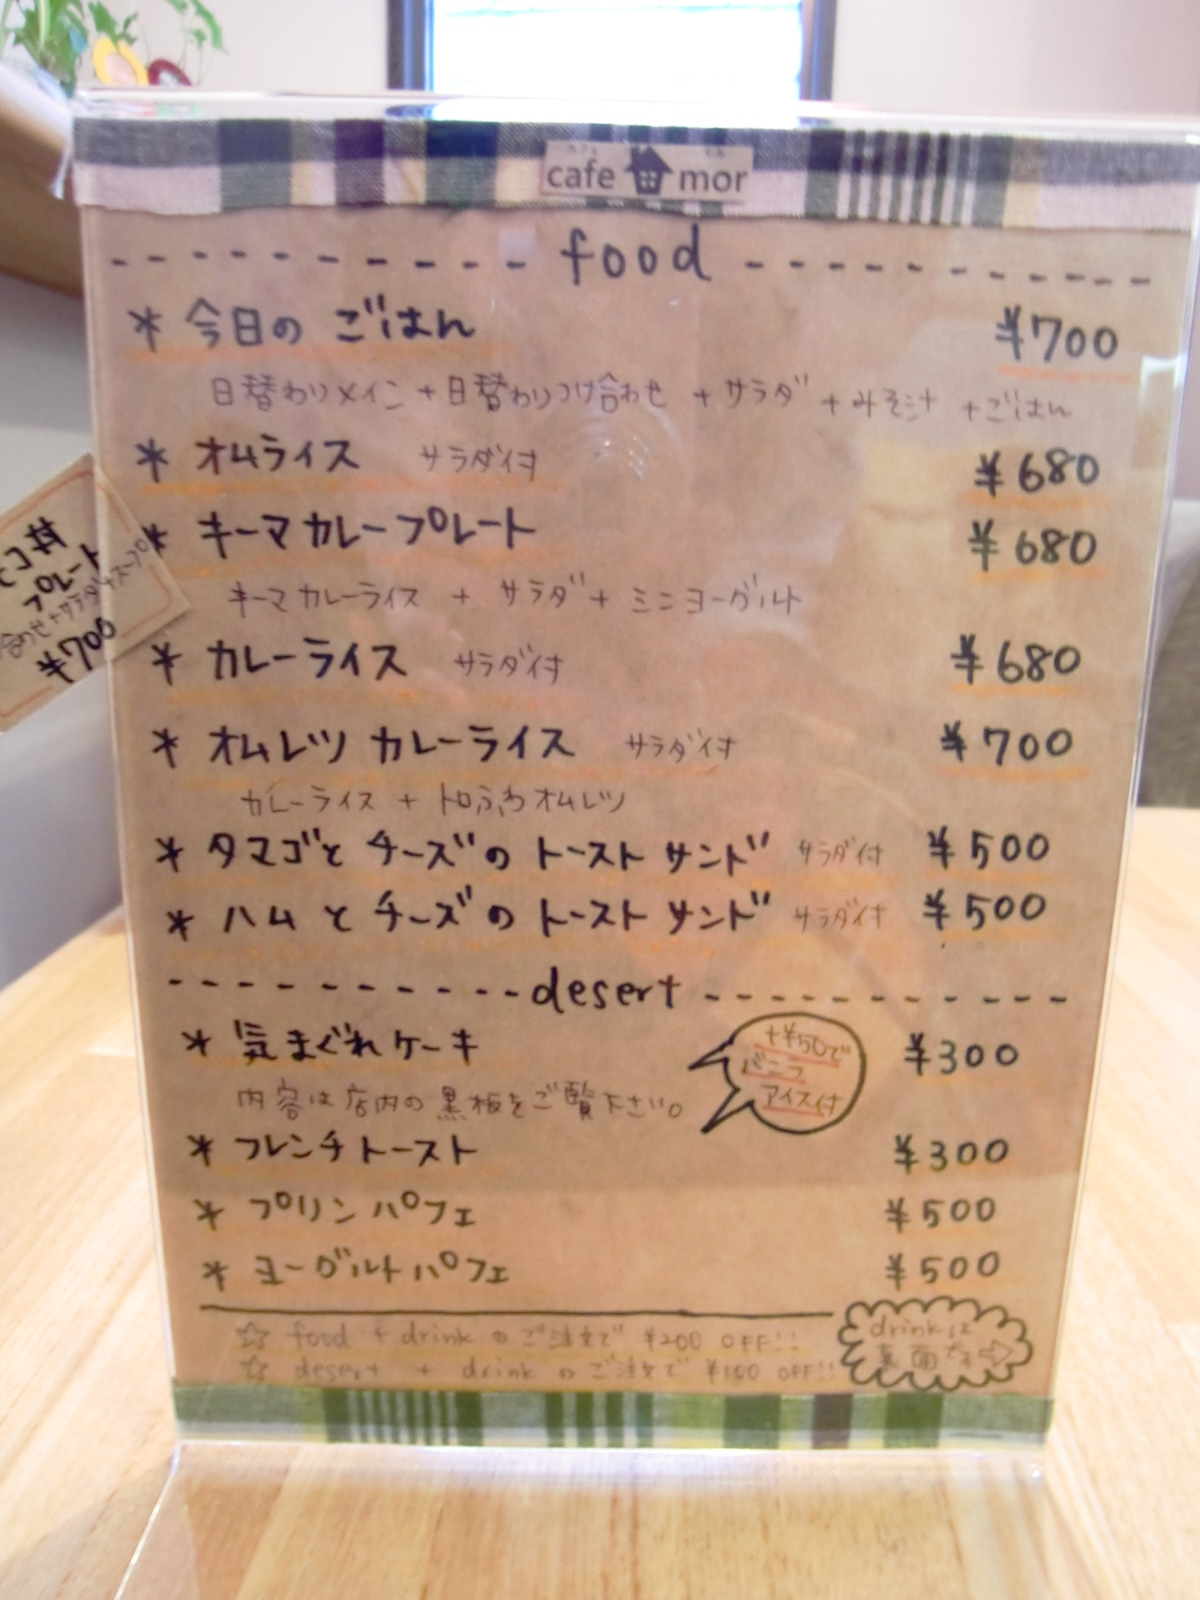 cafe mor
food
* 今日の ごはん ¥700
日替わりメイン+日替わりつけ合わせ +サラダ +みそ汁 +ごはん
* オムライス サラダ付 ¥680
* キーマカレープレート ¥680
キーマカレーライス + サラダ + ミニヨーグルト
* カレーライス サラダ付 ¥680
* オムレツ カレーライス サラダ付 ¥700
カレーライス + トロふわオムレツ
* タマゴと チーズの トースト サンド サラダ付 ¥500
* ハムと チーズの トースト サンド サラダ付 ¥500
desert
* 気まぐれケーキ ¥300
内容は店内の黒板をご覧下さい。
+¥50で
バニラ
アイス付
* フレンチトースト ¥300
* プリンパフェ ¥500
* ヨーグルトパフェ ¥500
☆ food + drink のご注文で ¥200 OFF!!
☆ desert + drink のご注文で ¥100 OFF!!
drinkは
裏面です⇨
プレート
合わせ+サラダ+スープ
¥700